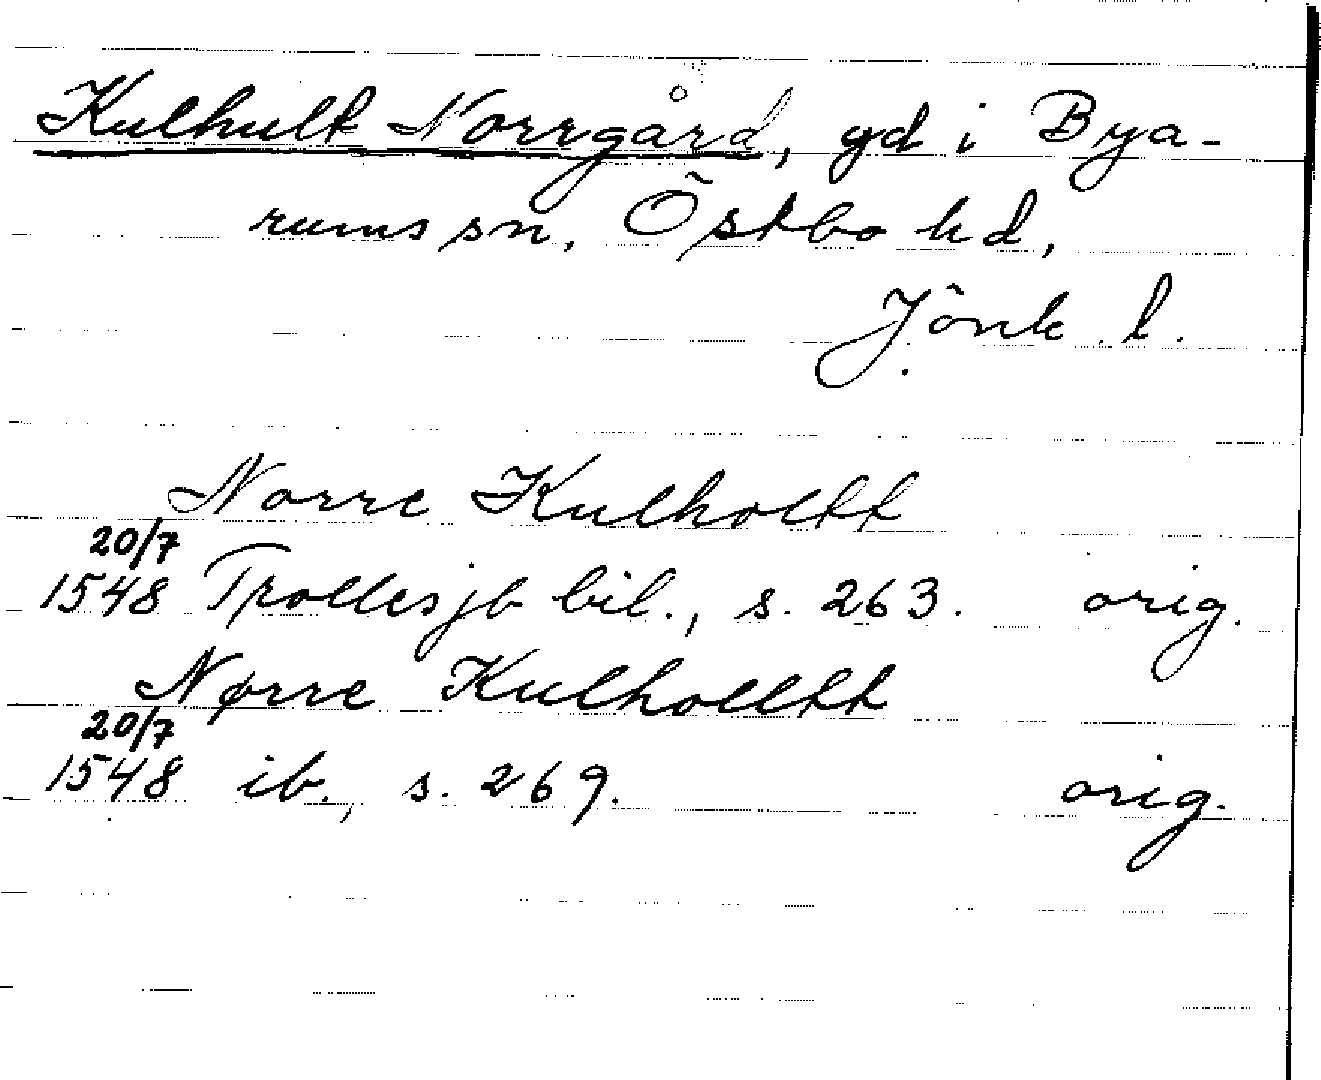 Kulhult Norrgård, gd i Bya-
rums sn, Östbo hd,
Jönk. l.
Norre Kulholtt
20/7
1548 Trolles jb bil., s. 263. orig.
Nørre Kulholltt
20/7
1548 ib., s. 269. orig.